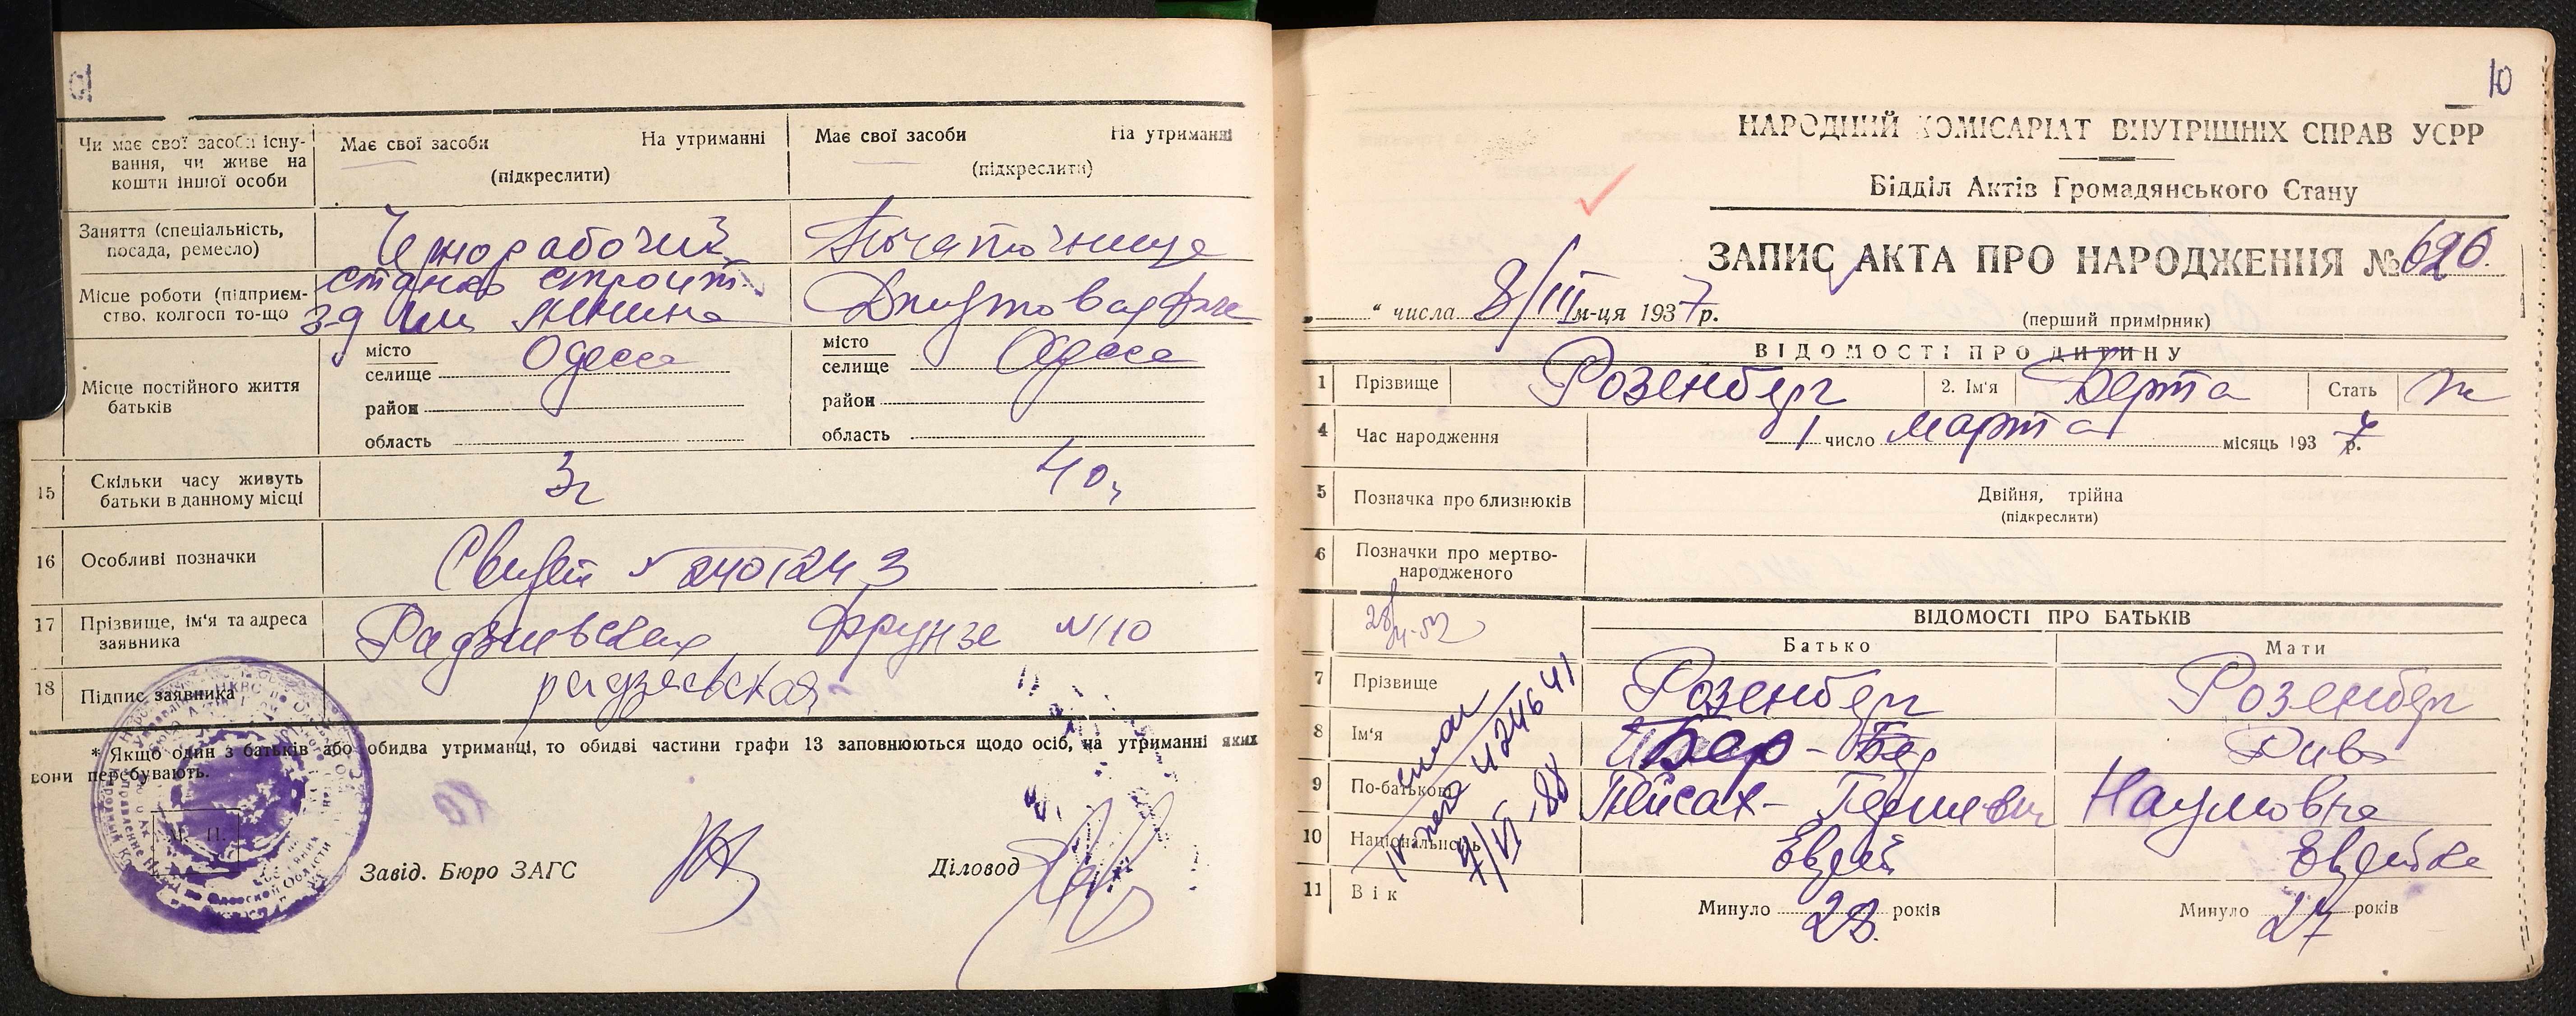 Чи має свої засоби існу-
вання, чи живе на
кошти іншої особи
Має свої засоби На утриманні
(підкреслити)
Має свої засоби На утриманні
(підкреслити)
Заняття (спеціальність,
посада, ремесло)
Чернорабочий
Початочнице
Місце роботи (підприєм-
ство, колгосп то-що
станко строит.
з-д им Ленина
Джутовая ф-ке
Місце постійного життя
батьків
місто Одесса
селище
район
область
місто Одесса
селище
район
область
15 Скільки часу живуть
батьки в данному місці
3 г
10
16 Особливі позначки
Свидет № 2401243
17 Прізвище, ім'я та адреса
заявника
Радзиевская Фрунзе № 110
18 Підпис заявника
радзиевская
* Якщо один з батьків або обидва утриманці, то обидві частини графи 13 заповнюються щодо осіб, на утриманні яких
вони перебувають.
М. П.
Завід. Бюро ЗАГС
Діловод
10
НАРОДНИЙ КОМІСАРІЯТ ВНУТРІШНІХ СПРАВ УСРР
Відділ Актів Громадянського Стану
ЗАПИС АКТА ПРО НАРОДЖЕННЯ № 626.
" числа 8/III м-ця 1937 р.
(перший примірник)
ВІДОМОСТІ ПРО ДИТИНУ
1 Прізвище Розенберг 2. Ім'я Берта Стать ж
4 Час народження 1 число марта місяць 1937 р.
5 Позначка про близнюків
Двійня, трійня
(підкреслити)
6 Позначки про мертво-
народженого
ВІДОМОСТІ ПРО БАТЬКІВ
Батько Мати
7 Прізвище Розенберг Розенберг
8 Ім'я Бер - Бер Рива
9 По-батькові Пейсах- Гершевич Наумовна
10 Національність Еврей Еврейка
11 Вік Минуло 28 років Минуло 27 років